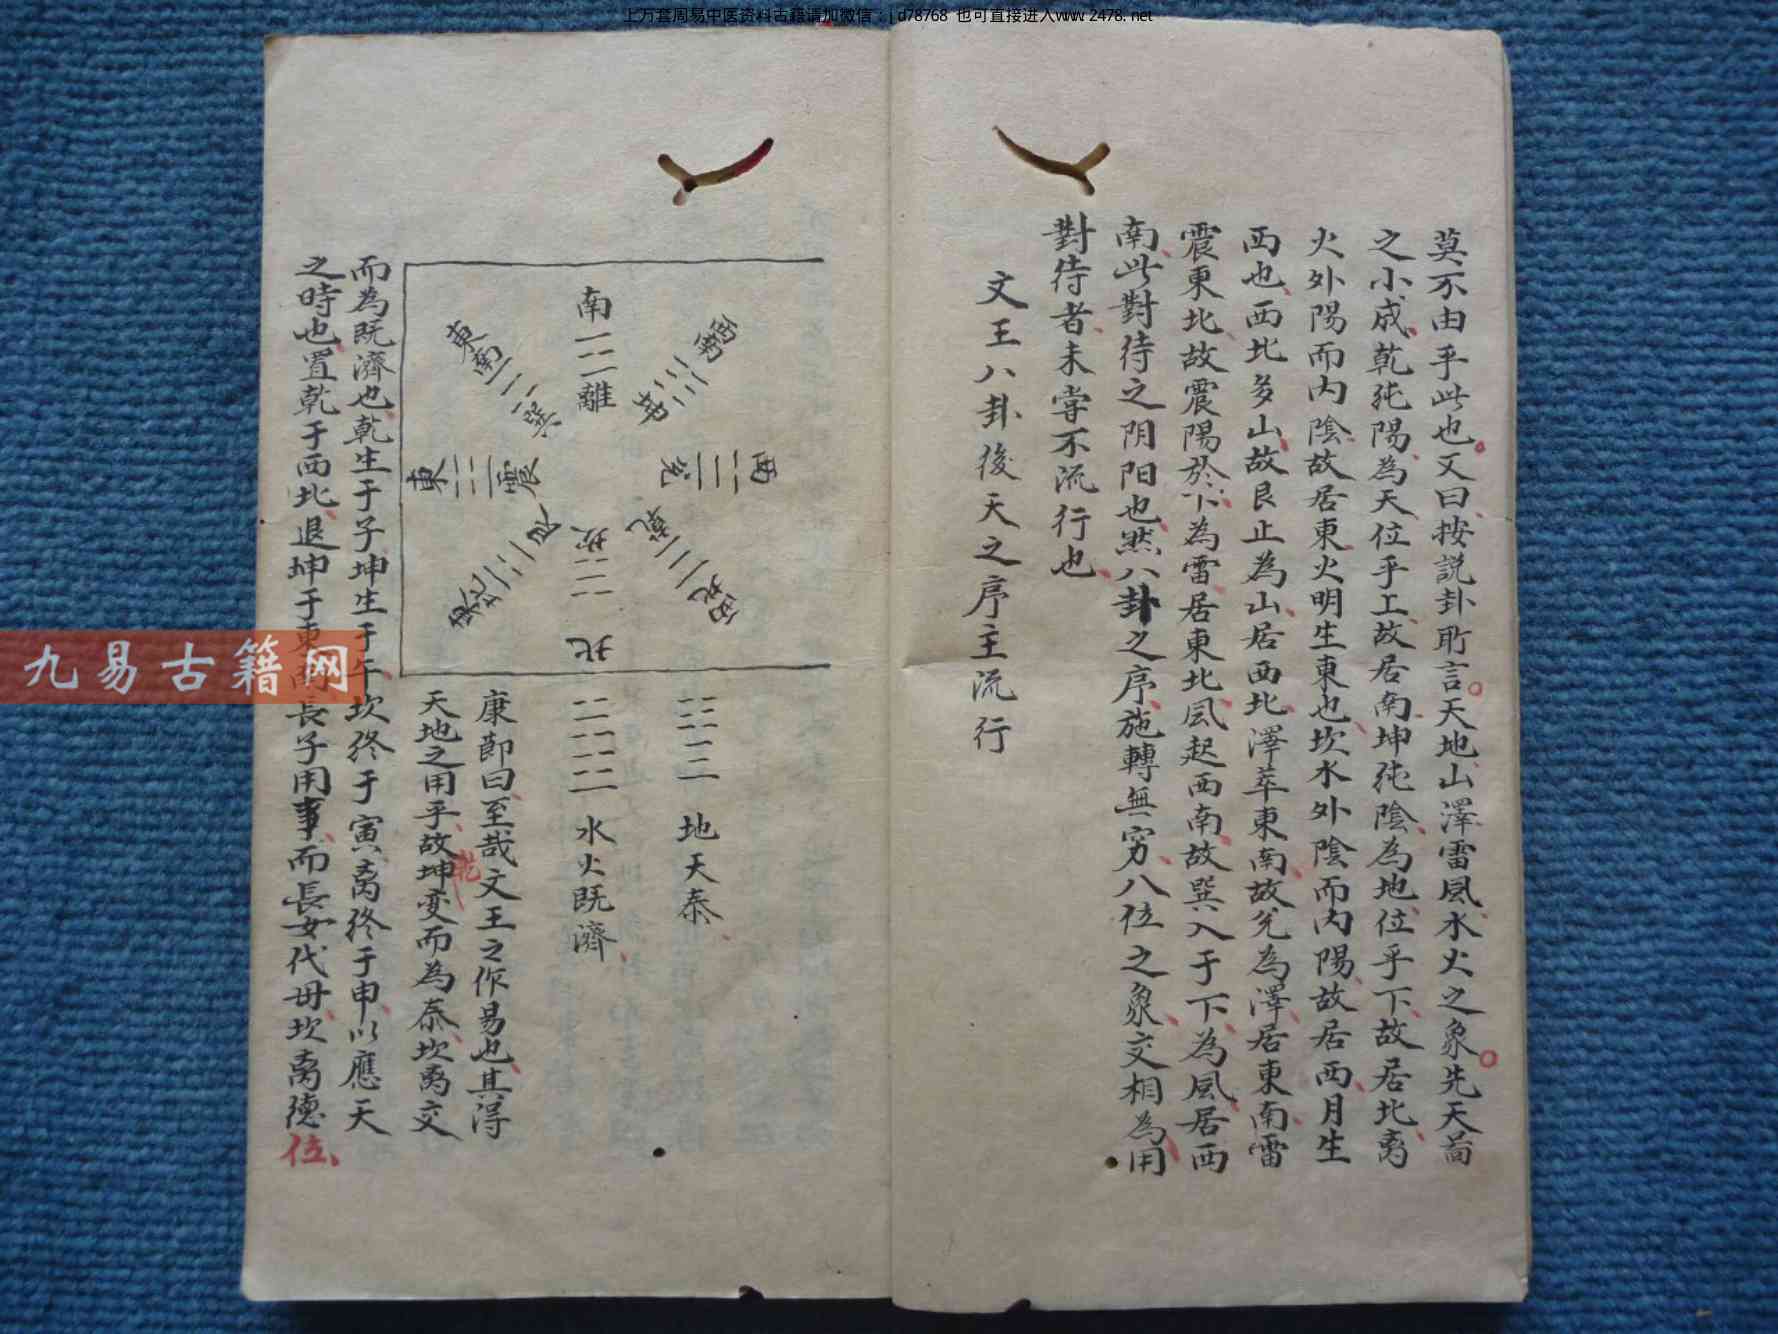 上万套周易中医资料古籍请加微信：jd78768 也可直接进入www.2478.net
莫不由乎此也又曰按説卦所言天地山澤雷風水火之象先天啚
之小成乾純陽為天位乎上故居南坤純陰為地位乎下故居北离
火外陽而内陰故居東火明生東也坎水外陰而内陽故居西月生
西也西北多山故艮止為山居西北澤萃東南故兊為澤居東南雷
震東北故震陽於下為雷居東北風起西南故巽入于下為風居西
南此對待之阴阳也然八卦之序施轉無窮八位之象交相為用
對待者未嘗不流行也
文王八卦後天之序主流行
南 離
西南 坤
西 兊
西北 乾
北 坎
東北 艮
東 震
東南 巽
地天泰
水火既濟
康節曰至哉文王之作易也其得
天地之用乎故坤变而為泰坎离交
乾
而為既濟也乾生于子坤生于午坎终于寅离终于申以應天
之時也置乾于西北退坤于東長子用事而長女代母坎离德
位
九易古籍网